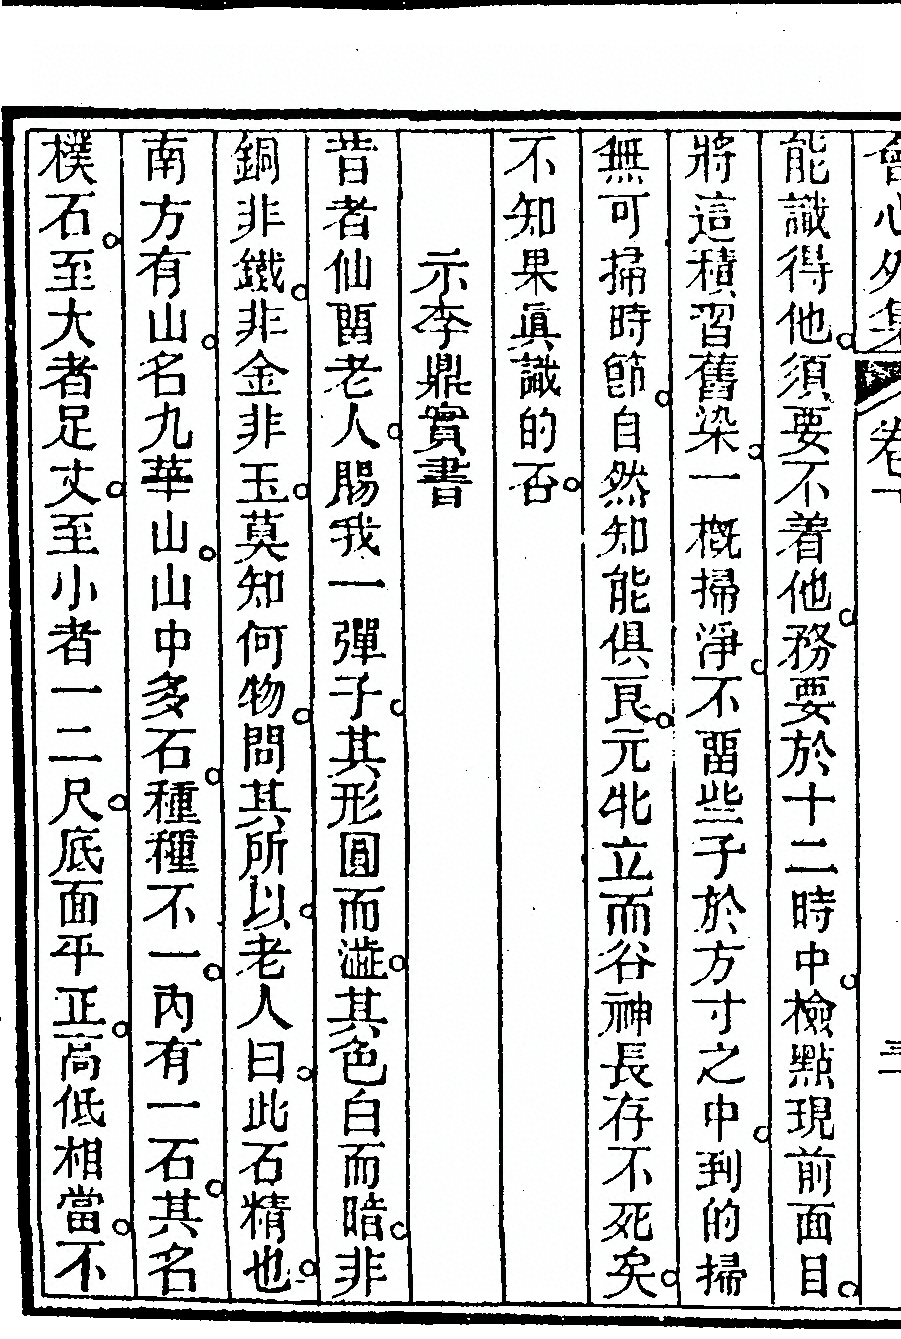 會心外集 卷
能識得他。須要不着他。務要於十二時中。檢點現前面目。
將這積習舊染。一概掃淨。不畱些子於方寸之中。到的掃
無可掃時節。自然知能俱良。元牝立而谷神長存不死矣。
不知果眞識的否。
示李鼎實書
昔者仙畱老人。賜我一彈子。其形圓而澁。其色白而晧。非
銅非鐵。非金非玉。莫知何物。問其所以。老人曰。此石精也。
南方有山。名九華山。山中多石。種種不一。內有一石。其名
樸石。至大者足丈。至小者一二尺。底面平正。高低相當。不